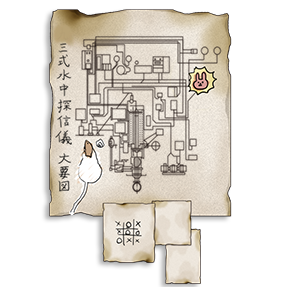 三式水中探信儀 大要図